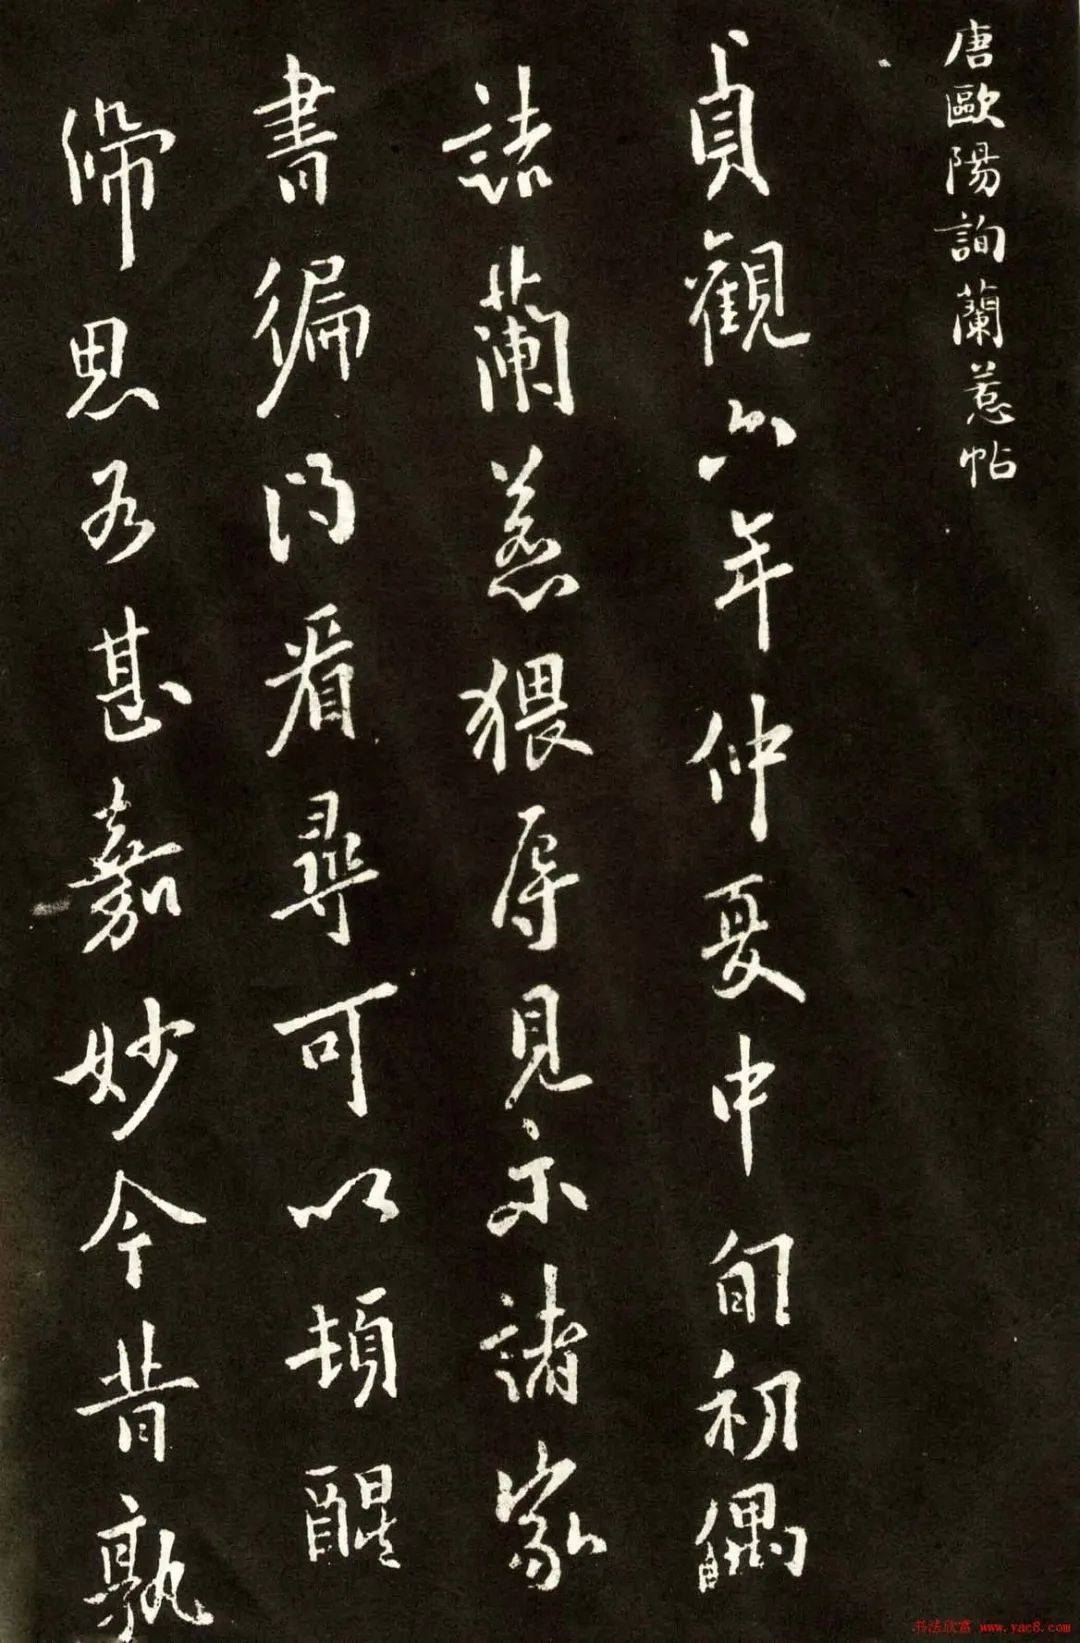 唐歐陽詢蘭惹帖
貞觀六年仲夏中旬初偶
詰蘭惹猥辱見示諸家
書徧得看尋可以頓醒
滯思為甚嘉妙今昔孰
书法欣赏 www.yac8.com